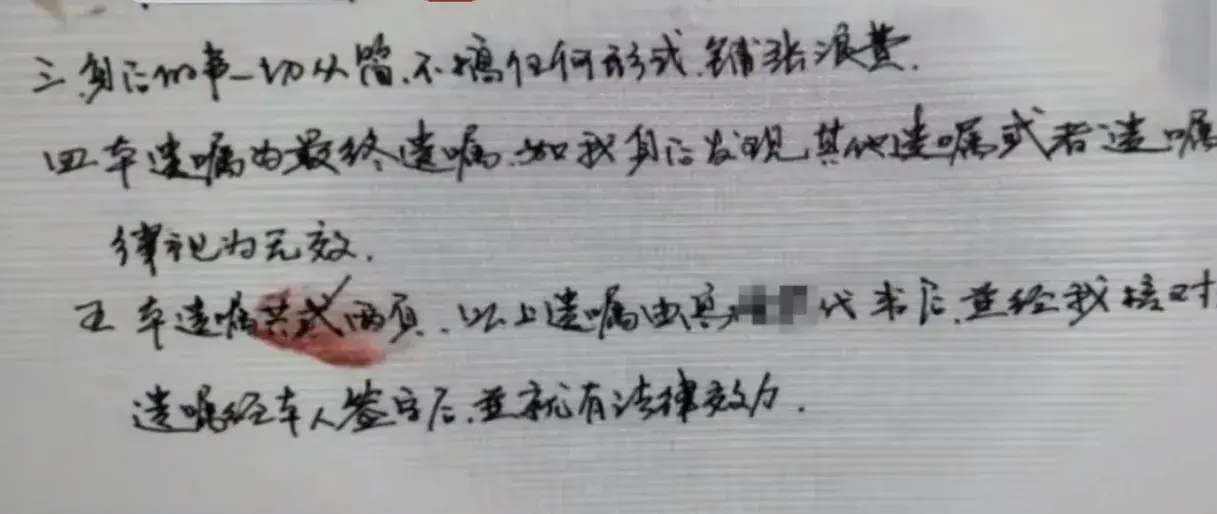 三.身后的事一切从简.不搞任何形式.铺张浪费.
四本遗嘱为最终遗嘱.如我身后发现其他遗嘱或者遗嘱
律视为无效.
五本遗嘱共式两页.以上遗嘱由 代书后.并经我核对
遗嘱经本人签字后.并就有法律效力.